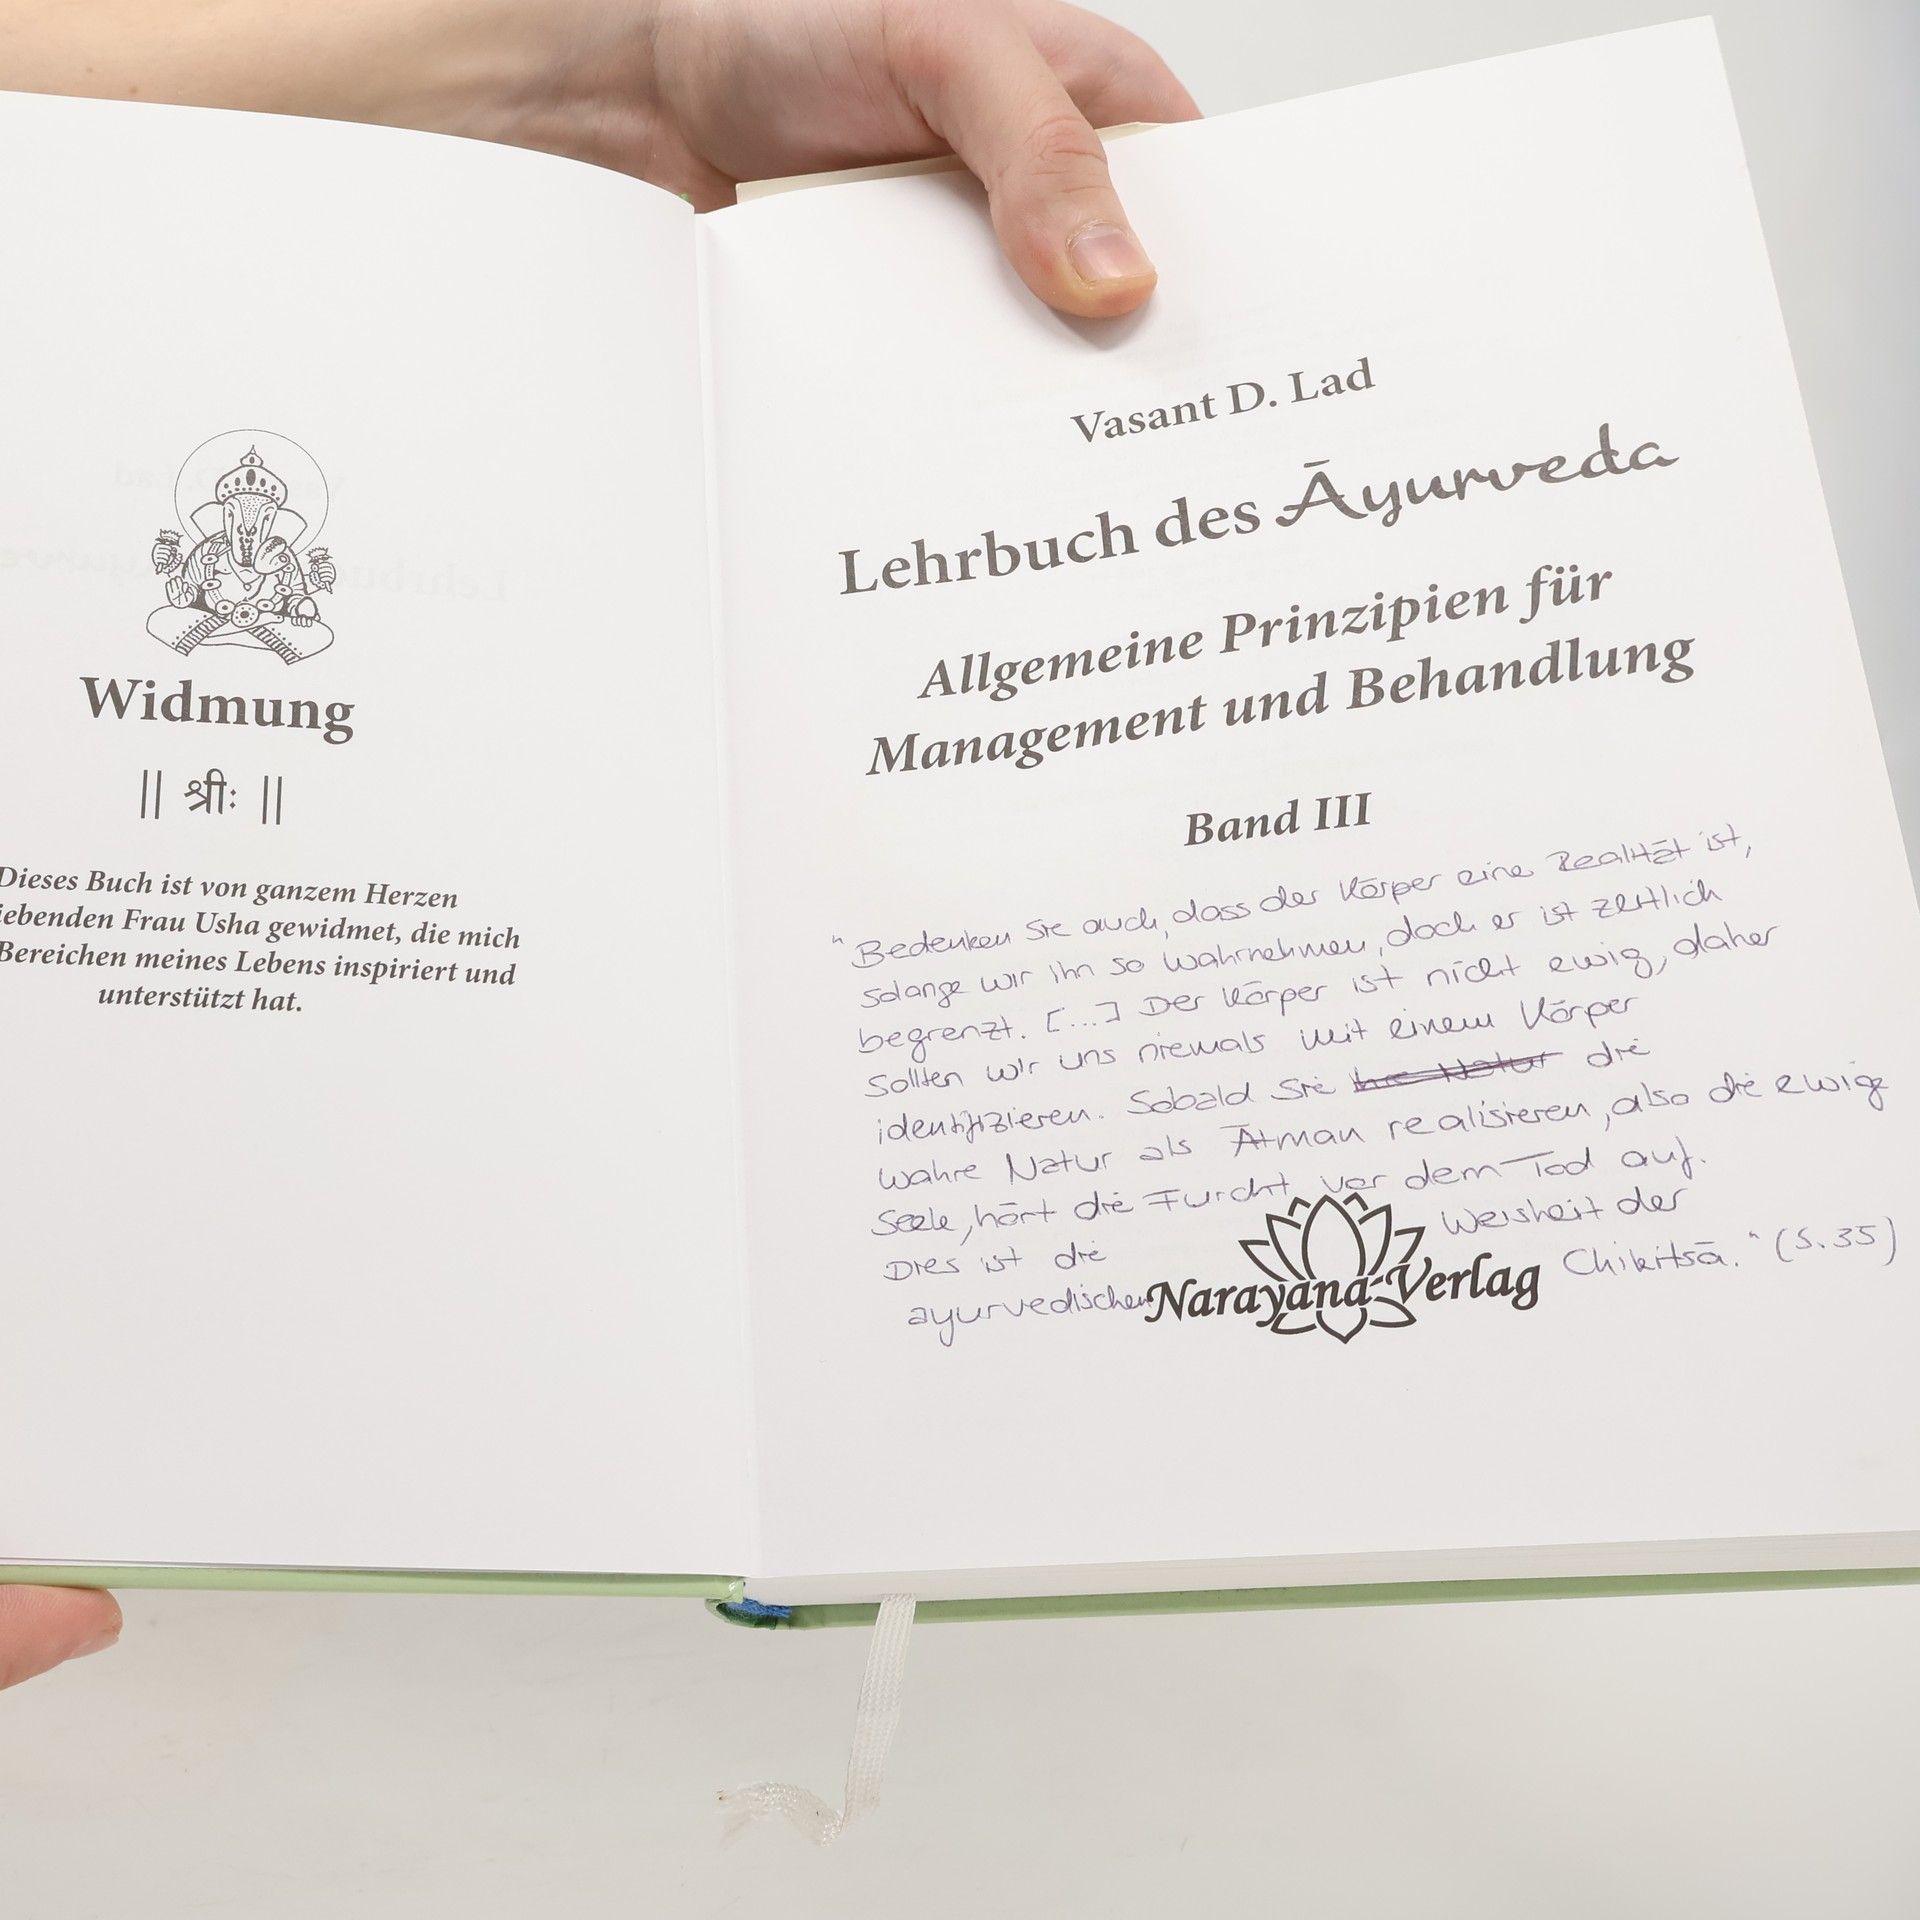 Widmung
|| श्रीः ||
Dieses Buch ist von ganzem Herzen
iebenden Frau Usha gewidmet, die mich
Bereichen meines Lebens inspiriert und
unterstützt hat.
Vasant D. Lad
Lehrbuch des Āyurveda
Allgemeine Prinzipien für
Management und Behandlung
Band III
"Bedenken Sie auch, dass der Körper eine Realität ist,
solange wir ihn so wahrnehmen, doch er ist zeitlich
begrenzt. [...] Der Körper ist nicht ewig, daher
sollten wir uns niemals mit einem Körper
identifizieren. Sobald Sie ihre Natur die
wahre Natur als Ātman realisieren, also die ewige
Seele, hört die Furcht vor dem Tod auf.
Dies ist die Weisheit der
ayurvedischen Chikitsā." (S. 35)
Narayana-Verlag